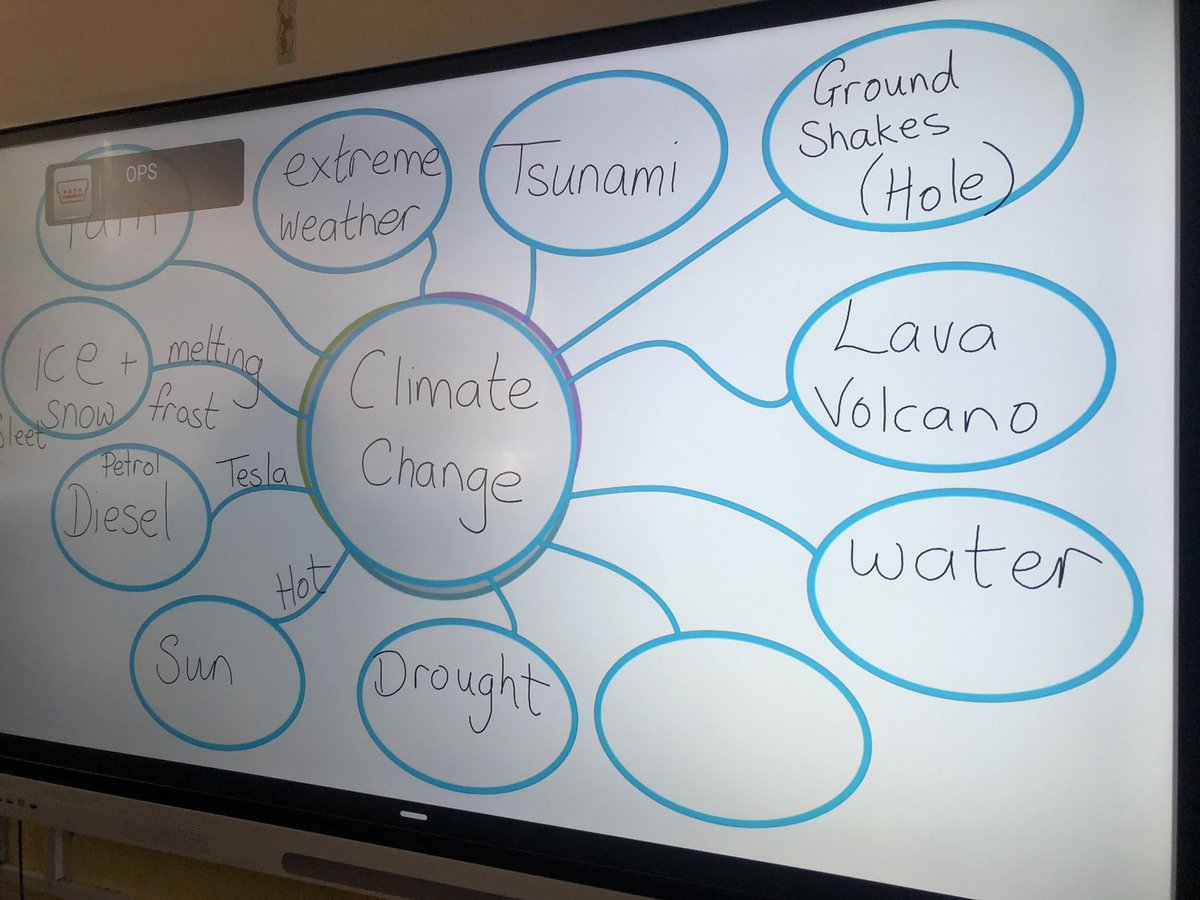 OPS
extreme
weather
Tsunami
Ground
Shakes
(Hole)
Ice +
snow
Sleet
melting
frost
Climate
Change
Lava
Volcano
Petrol
Diesel
Tesla
water
Hot
Sun
Drought